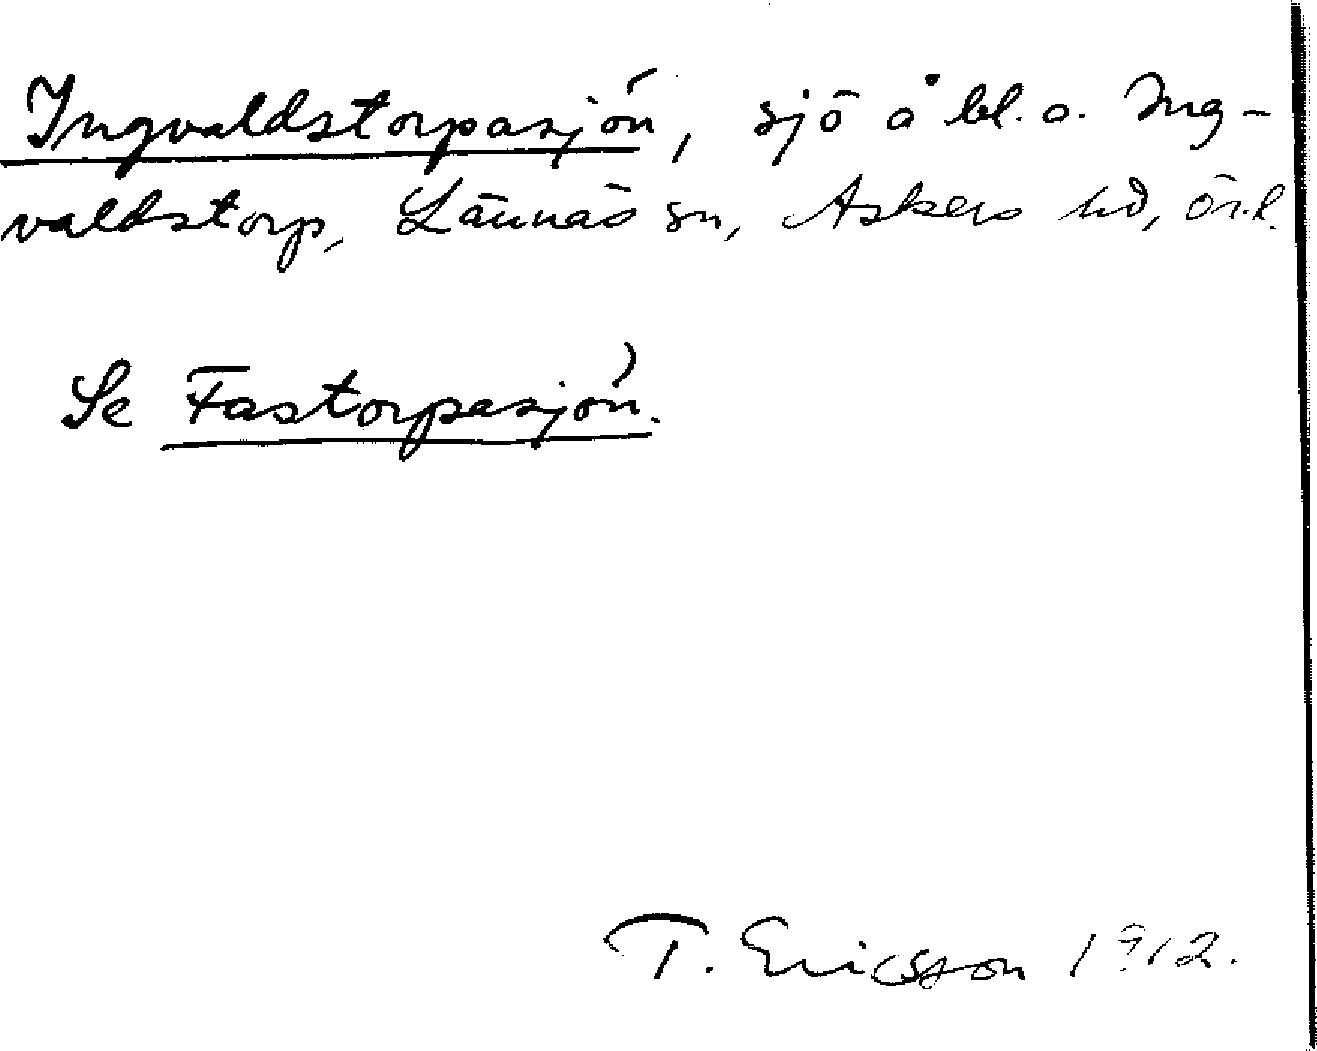 Ingvaldstorpasjön, sjö å bl. a. Ing-
valdstorp, Lännäs sn, Askers hd, Ör.l.
Se Fastorpasjön.
T. Ericsson 1912.